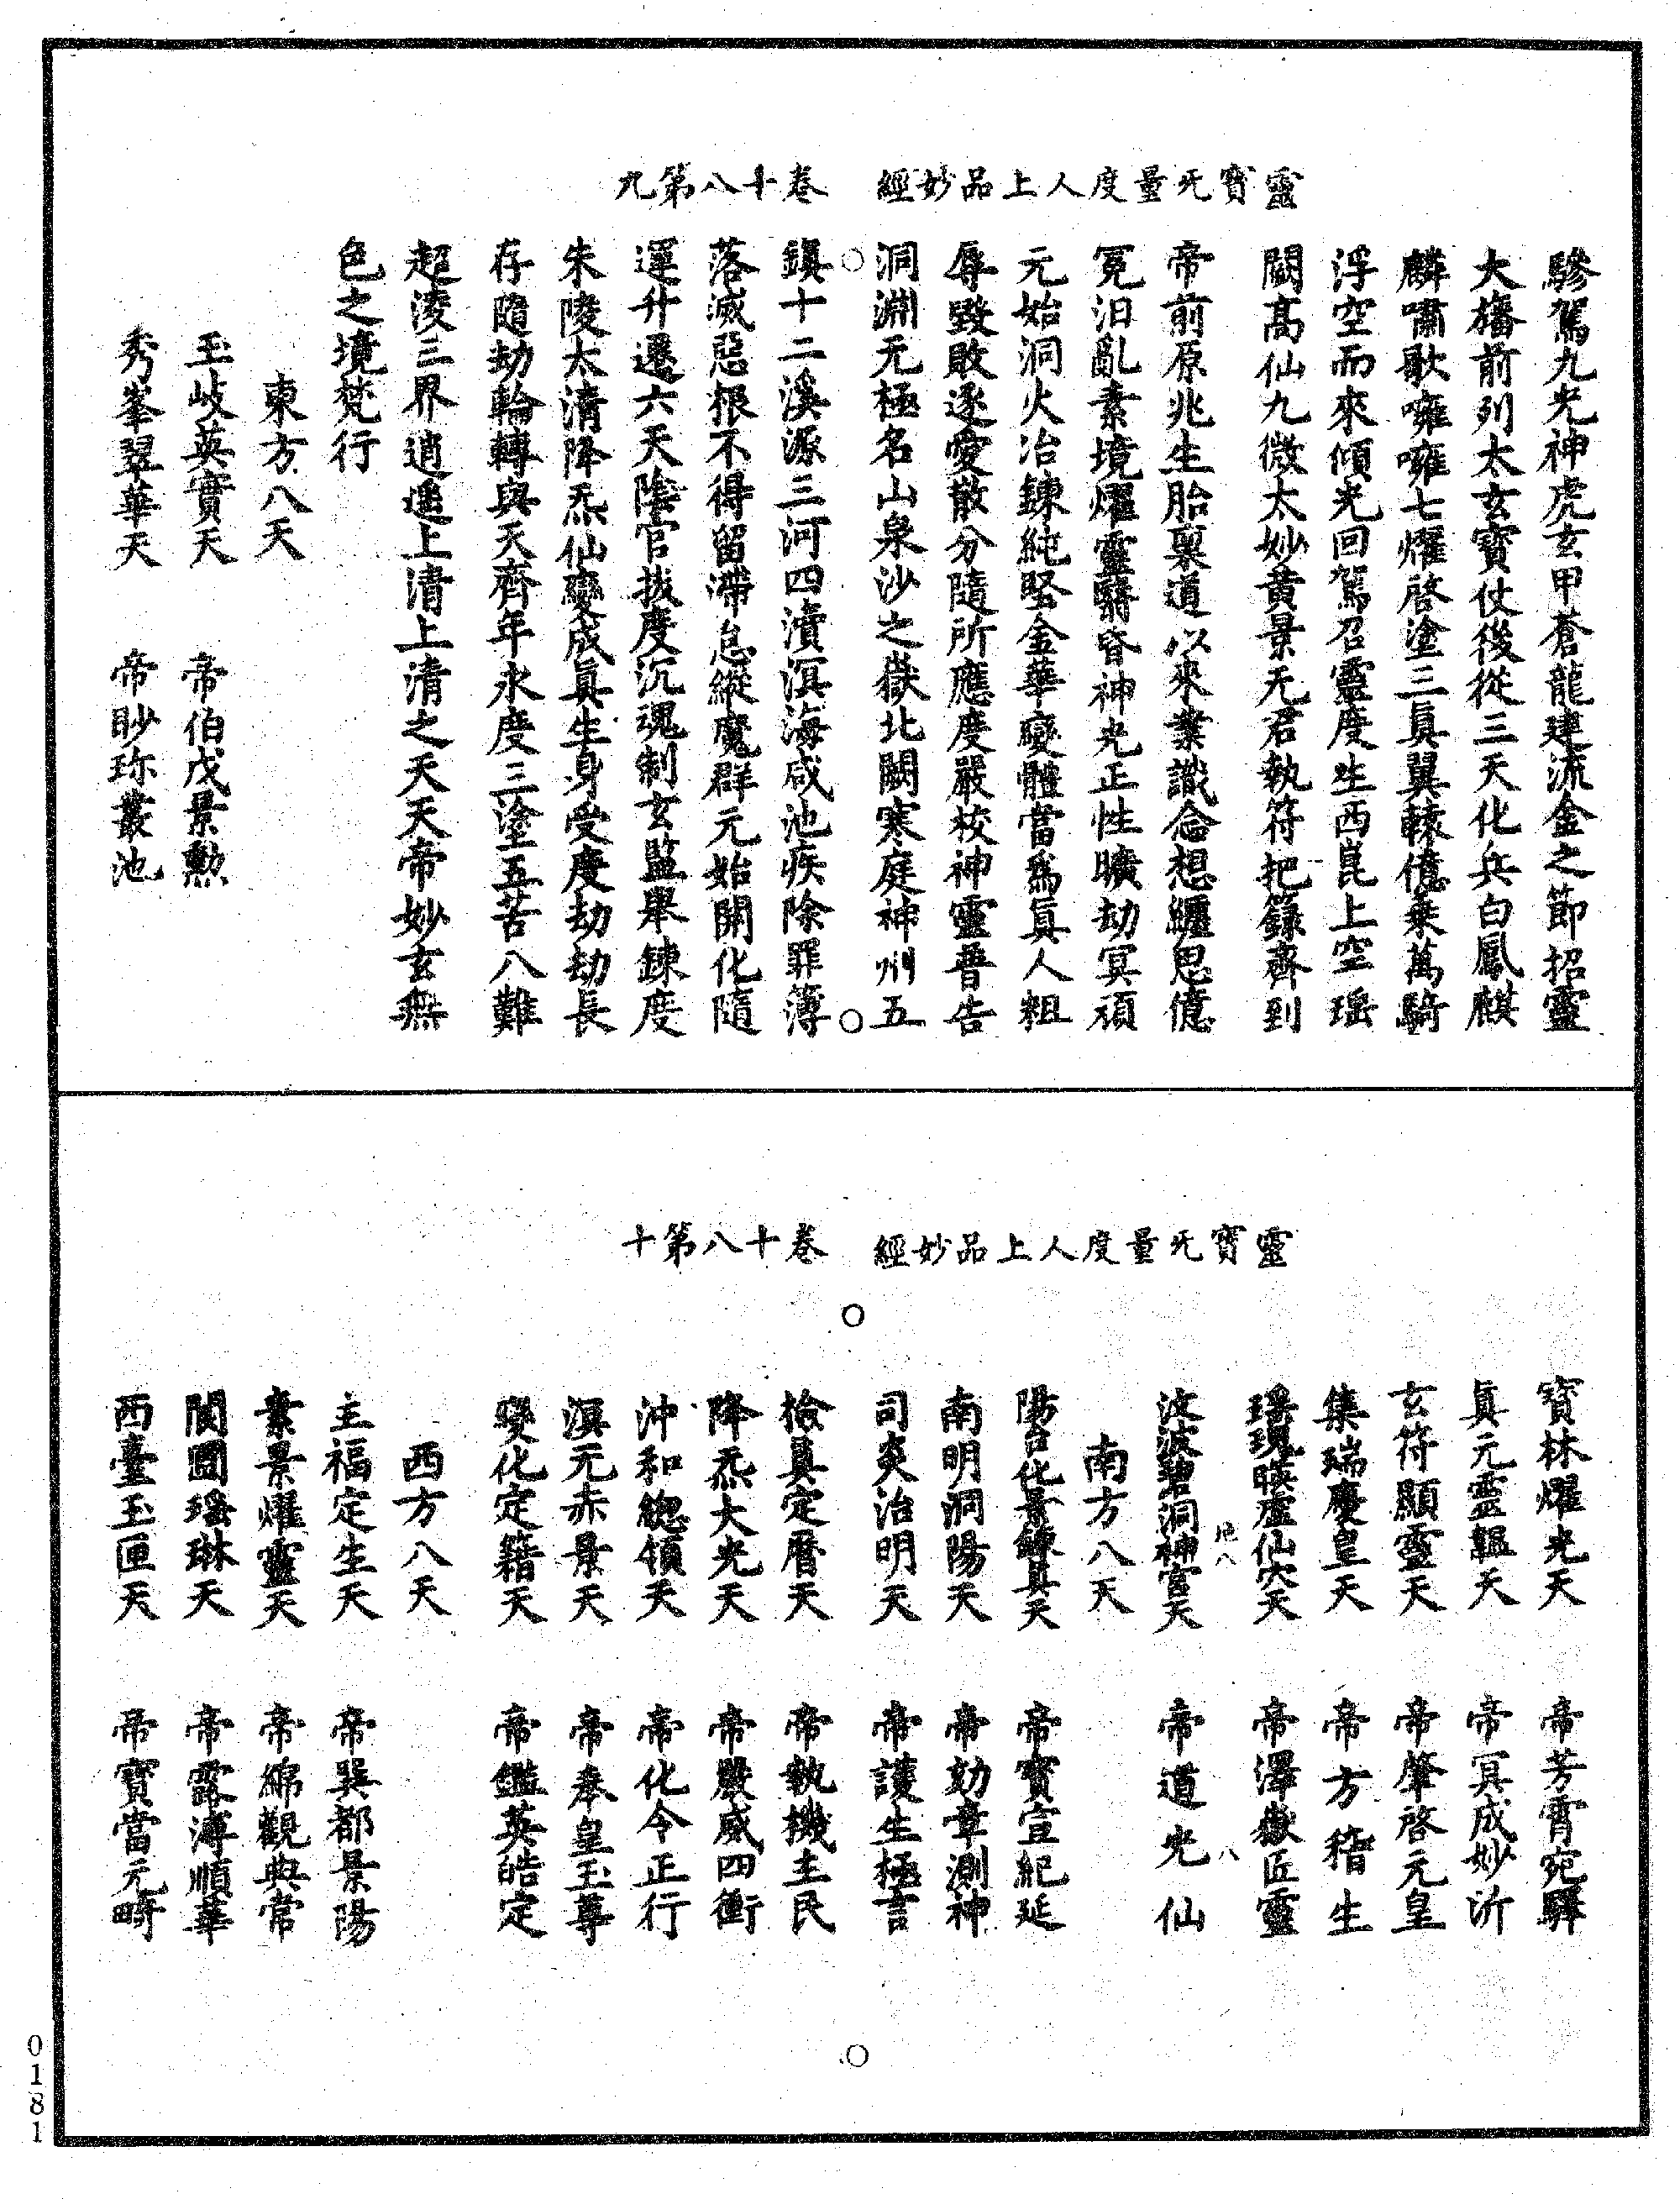 靈寶无量度人上品妙經　卷十八第九
驂駕九光神虎玄甲蒼龍建流金之節招靈
大旛前列太玄寶仗後從三天化兵白鳳麒
麟嘯歌嗈嗈七燿啓塗三眞翼轅億乘萬騎
浮空而來傾光回駕召靈度生西崑上空瑶
闕高仙九微太妙黃景无君執符把籙齊到
帝前原兆生胎禀道以來業識念想纒思億
冤汨亂素境燿靈翳昏神光正性曠劫冥頑
元始洞火冶鍊純堅金華變體當爲眞人粗
辱毀敗逐愛散分隨所應度嚴校神靈普告
洞淵无極名山泉沙之嶽北闕寒庭神州五
鎮十二溪源三河四瀆溟海咸池疾除罪簿
落滅惡根不得留滯怠縱魔群元始開化隨
運升遷六天陰官拔度沉魂制玄監舉鍊度
朱陵太清降炁仙變成眞生身受度劫劫長
存隨劫輪轉與天齊年永度三塗五苦八難
超淩三界逍遥上清上清之天天帝妙玄無
色之境梵行
東方八天
玉岐英寶天　帝伯戊景勲
秀峯翠華天　帝眇珎叢池
靈寶无量度人上品妙經　卷十八第十
寶林燿光天　帝芳霄宛驛
眞元靈韞天　帝冥成妙沂
玄符顯靈天　帝肇啓元皇
集瑞慶皇天　帝方稽生
瑶現暎虛仙穴天　帝澤嶽匠靈
八
波波碧洞神宮天　帝道光仙
南方八天
陽台化景鍊眞天　帝寶宣紀延
南明洞陽天　帝劾章測神
司炎治明天　帝護生極言
檢眞定曆天　帝執機主民
降炁大光天　帝嚴威四衝
沖和總領天　帝化令正行
溟元赤景天　帝奉皇玉尊
變化定籍天　帝鑑英皓定
西方八天
主福定生天　帝巽都景陽
素景燿靈天　帝綿觀典常
閬圃瑶琳天　帝露溥順華
西臺玉匣天　帝寶當元畤
0181